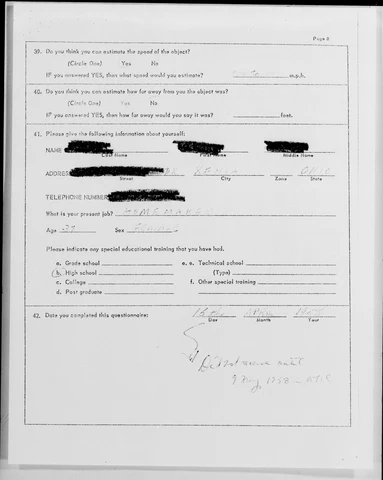 Page 8
39. Do you think you can estimate the speed of the object?
(Circle One) Yes No
IF you answered YES, then what speed would you estimate? m.p.h.
40. Do you think you can estimate how far away from you the object was?
(Circle One) Yes No
IF you answered YES, then how far away would you say it was? feet.
41. Please give the following information about yourself:
NAME
Last Name First Name Middle Name
ADDRESS XENIA OHIO
Street City Zone State
TELEPHONE NUMBER
What is your present job? HOMEMAKER
Age 37 Sex FEMALE
Please indicate any special educational training that you have had.
a. Grade school e. e. Technical school
b. High school (Type)
c. College f. Other special training
d. Post graduate
42. Date you completed this questionnaire: April
Day Month Year
Did not receive until